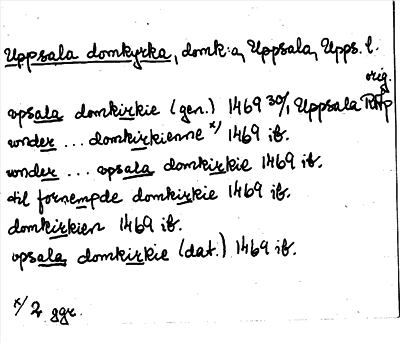 Uppsala domkyrka, domk:a, Uppsala, Upps. l.
orig.
opsala domkirkie (gen.) 1469 30/1 Uppsala RAp
vonder ... domkirkienne x/ 1469 ib.
vonder ... opsala domkirkie 1469 ib.
til fornempde domkirkie 1469 ib.
domkirkien 1469 ib.
opsala domkirkie (dat.) 1469 ib.
x/ 2 ggr.